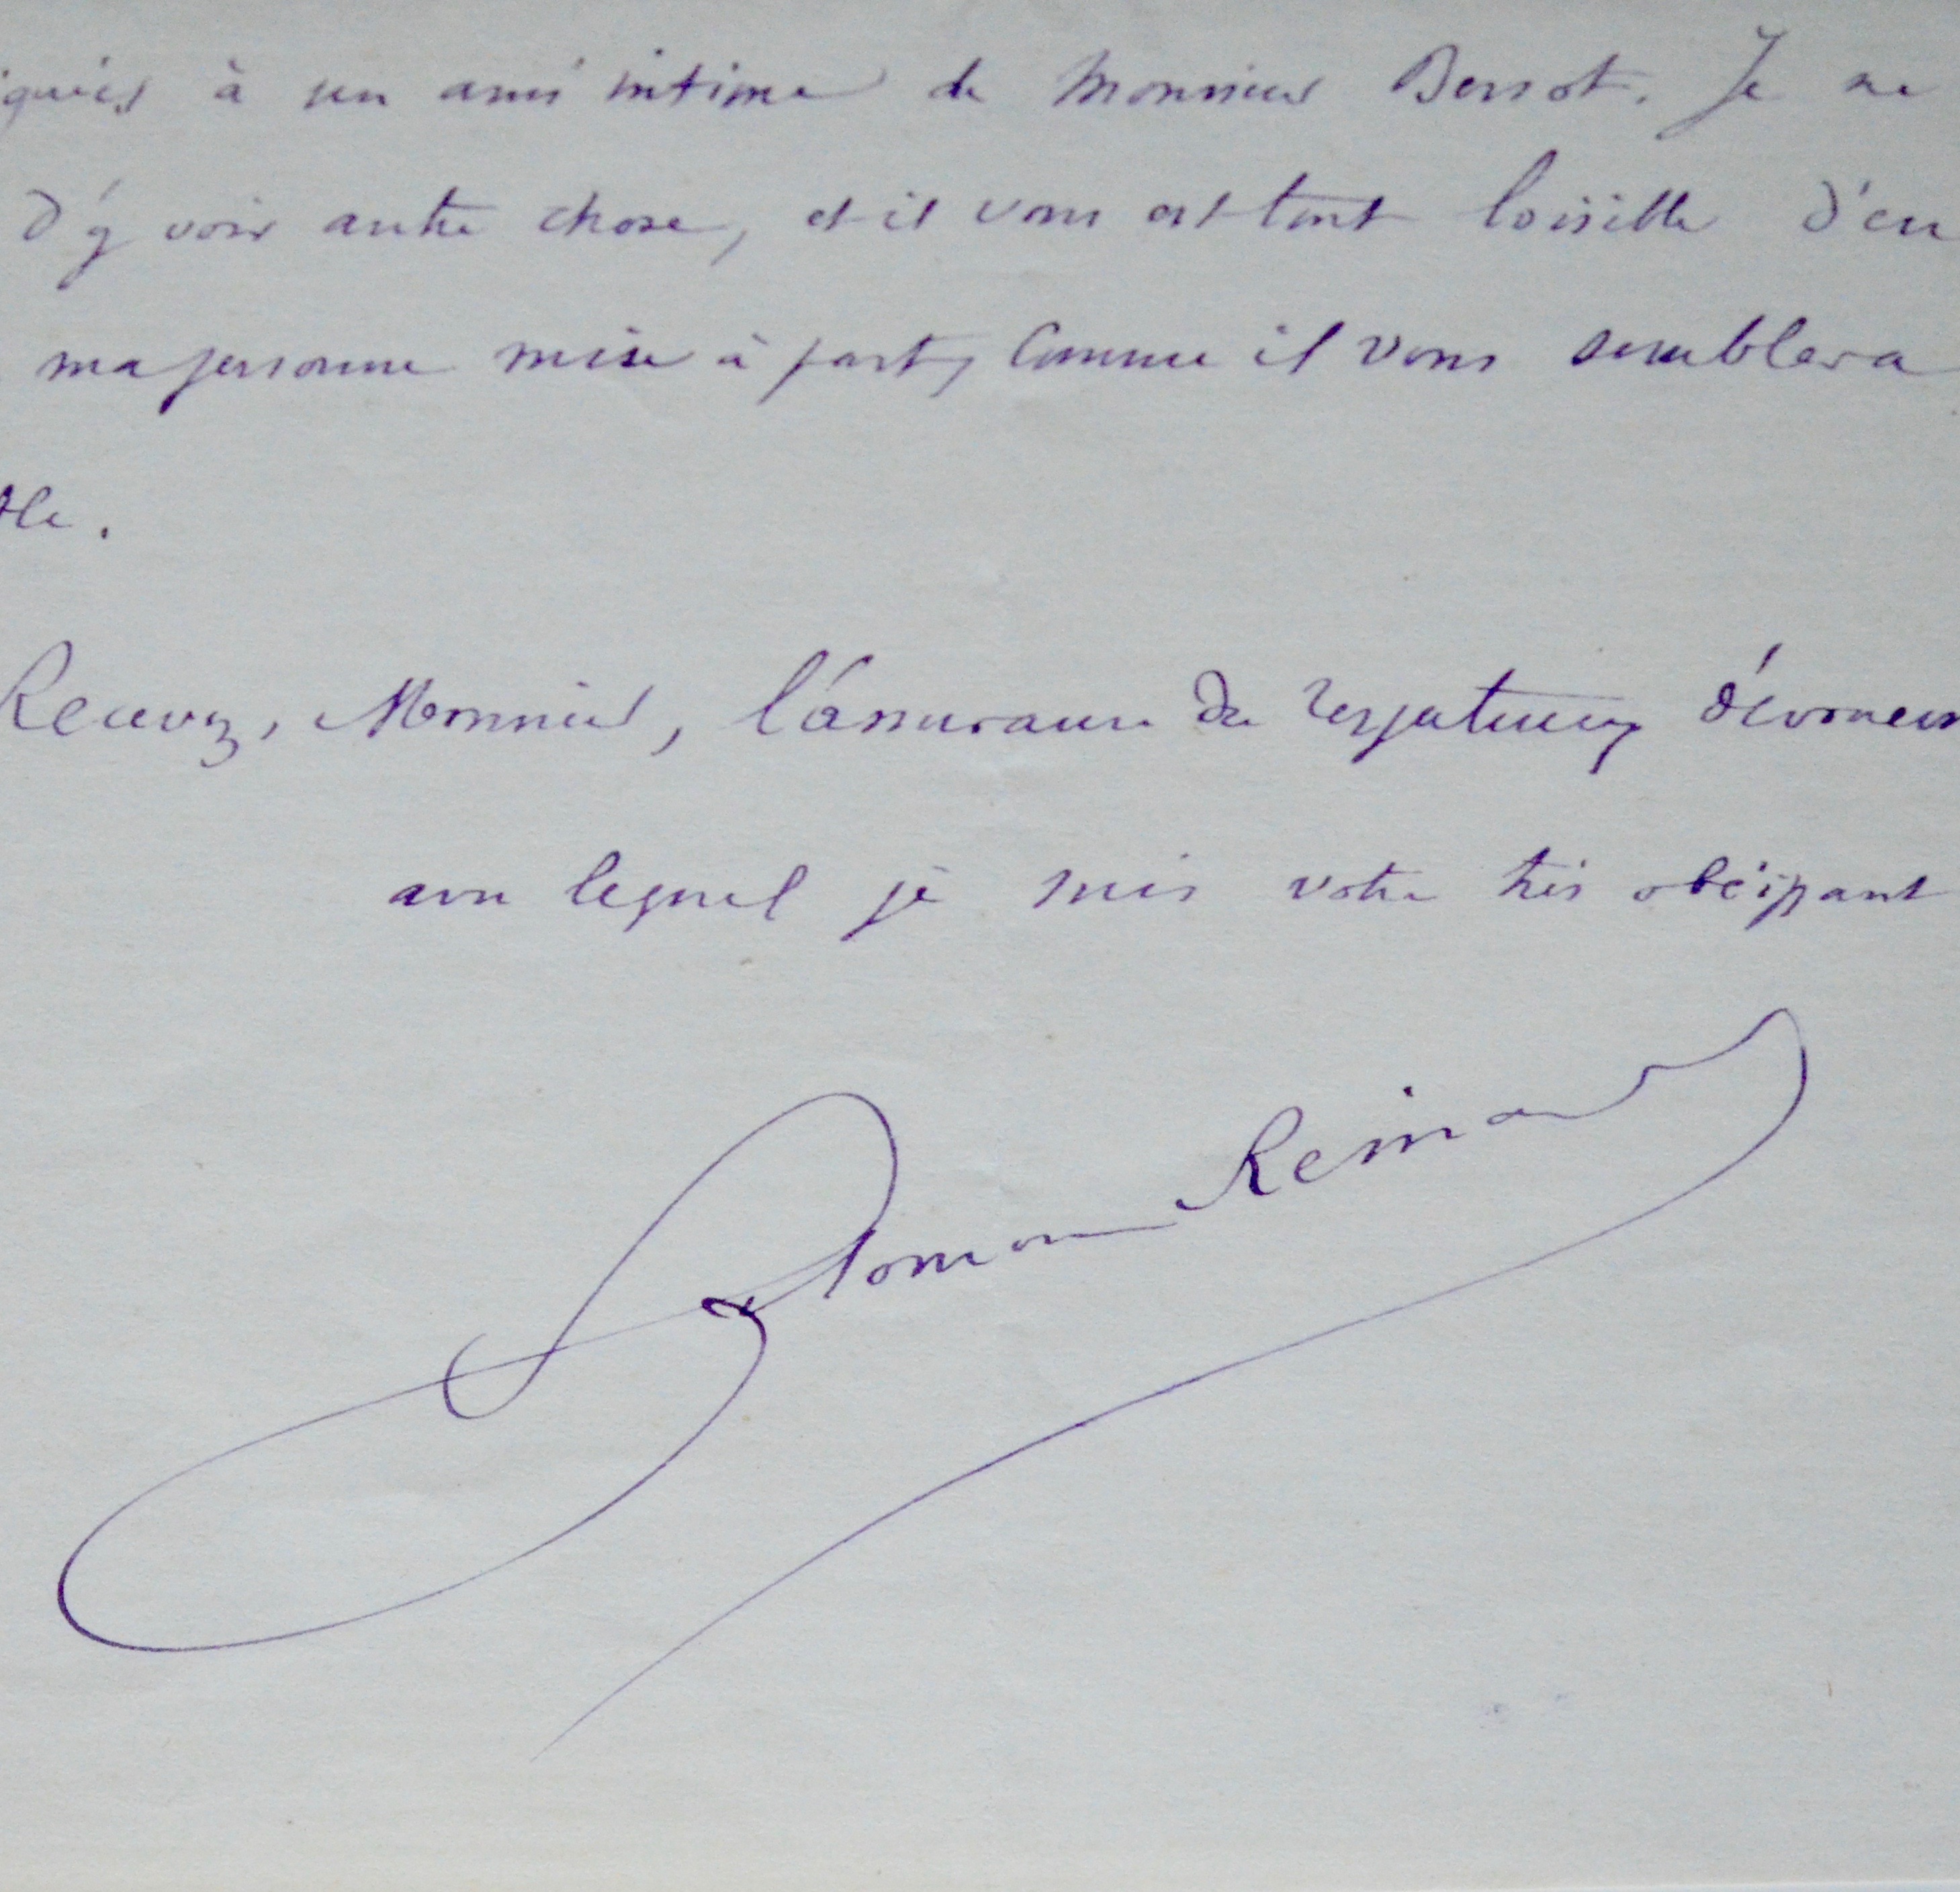 iqués à un ami intime de Monsieur Bersot. Je ne
d'y voir autre chose, et il vous est tout loisible d'en
ma personne mise à part, comme il vous semblera
ble.
Recevez, Monsieur, l'assurance du respectueux dévouem
avec lequel je suis votre très obéissant
Salomon Reinach